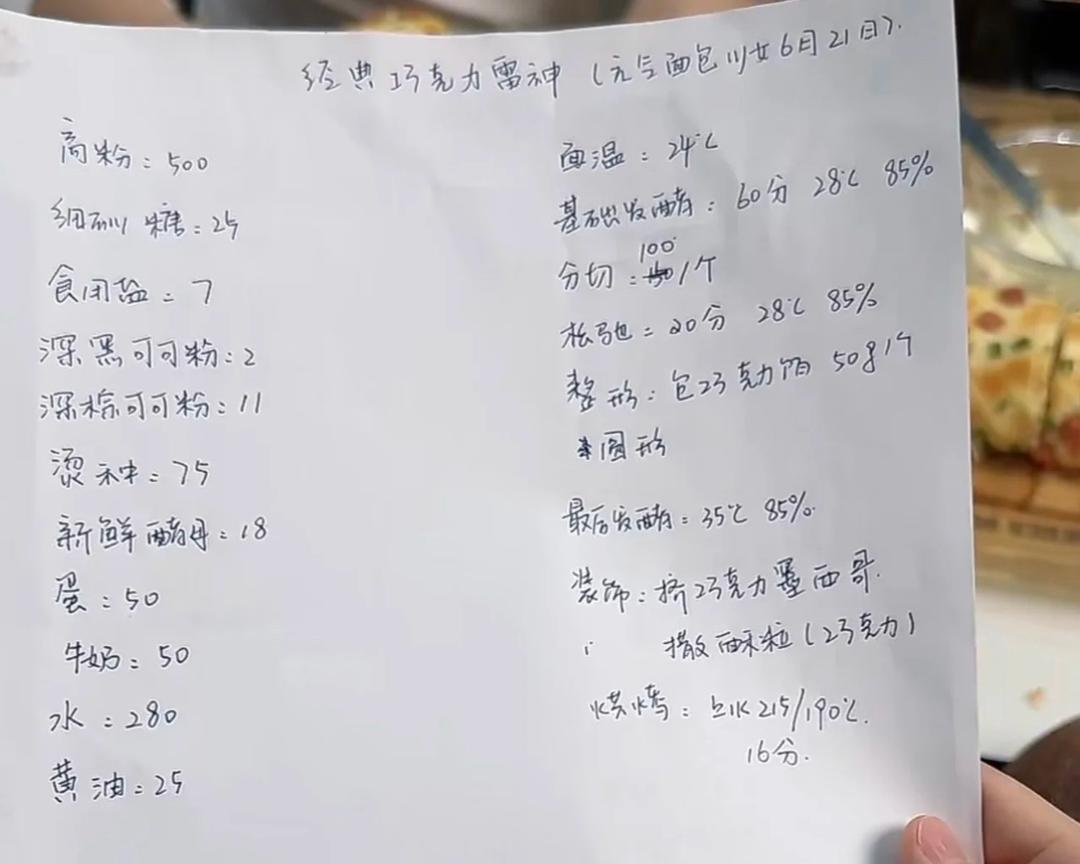 经典巧克力雷神（元气面包少女6月21日）.
高粉：500
细砂糖：25
食用盐：7
深黑可可粉：2
深棕可可粉：11
烫种：75
新鲜酵母：18
蛋：50
牛奶：50
水：280
黄油：25
面温：24℃
基础发酵：60分 28℃ 85%
分切：100/个
松弛：20分 28℃ 85%
整形：包巧克力馅 50g/个
圆形
最后发酵：35℃ 85%.
装饰：挤巧克力墨西哥.
撒酥粒（巧克力）
烘烤：上火215/190℃.
16分.